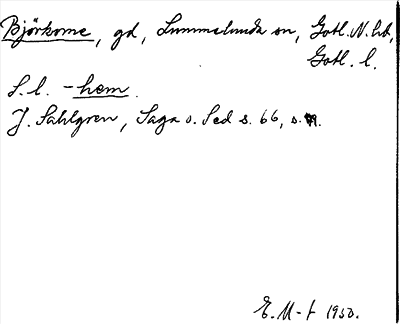 Björkome, gd, Lummelunda sn, Gotl. N. hd,
Gotl. l.
S. l. -hem.
J. Sahlgren, Saga o. Sed s. 66, s.
E. M-t 1950.